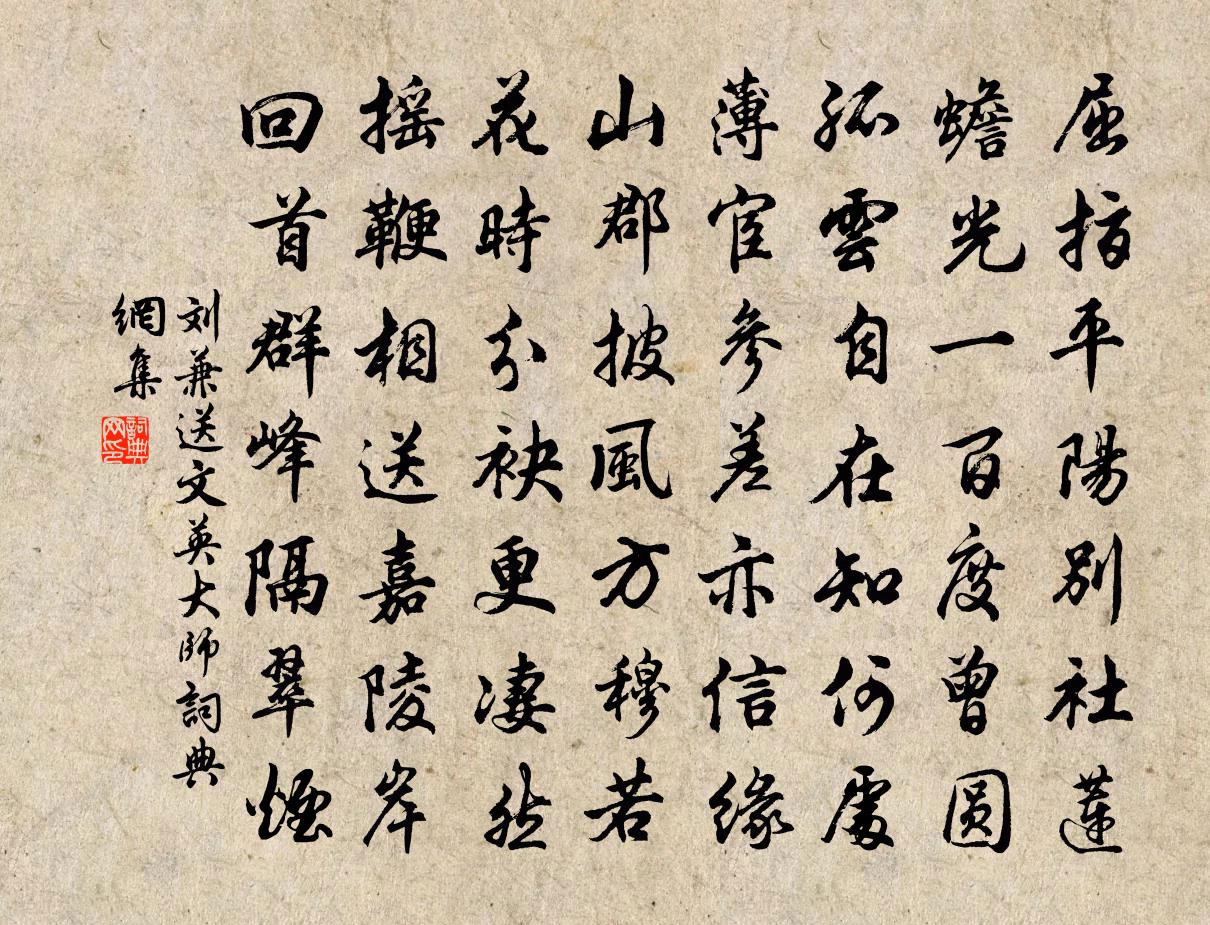 屈指平陽別社蓮
蟾光一百度曾圓
孤雲自在知何處
薄宦參差亦信緣
山郡披風方穆若
花時分袂更凄然
搖鞭相送嘉陵岸
回首群峰隔翠煙
刘兼送文英大師詞典
網集
詞典網印